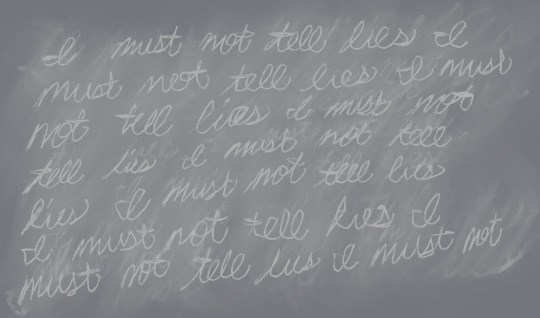 I must not tell lies I
must not tell lies I must
not tell lies I must not
tell lis I must not tell
lies I must not tell lies
I must not tell lies I
must not tell lis I must not